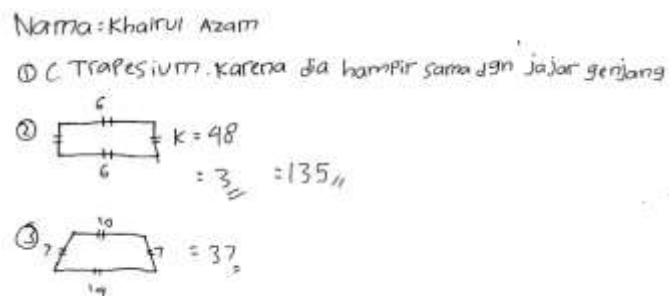 Nama: Khairul Azam
① C. Trapesium. Karena dia hampir sama dgn jajar genjang
② 6
K = 48
6
= 3 = 135
③ 10
7 7 = 37